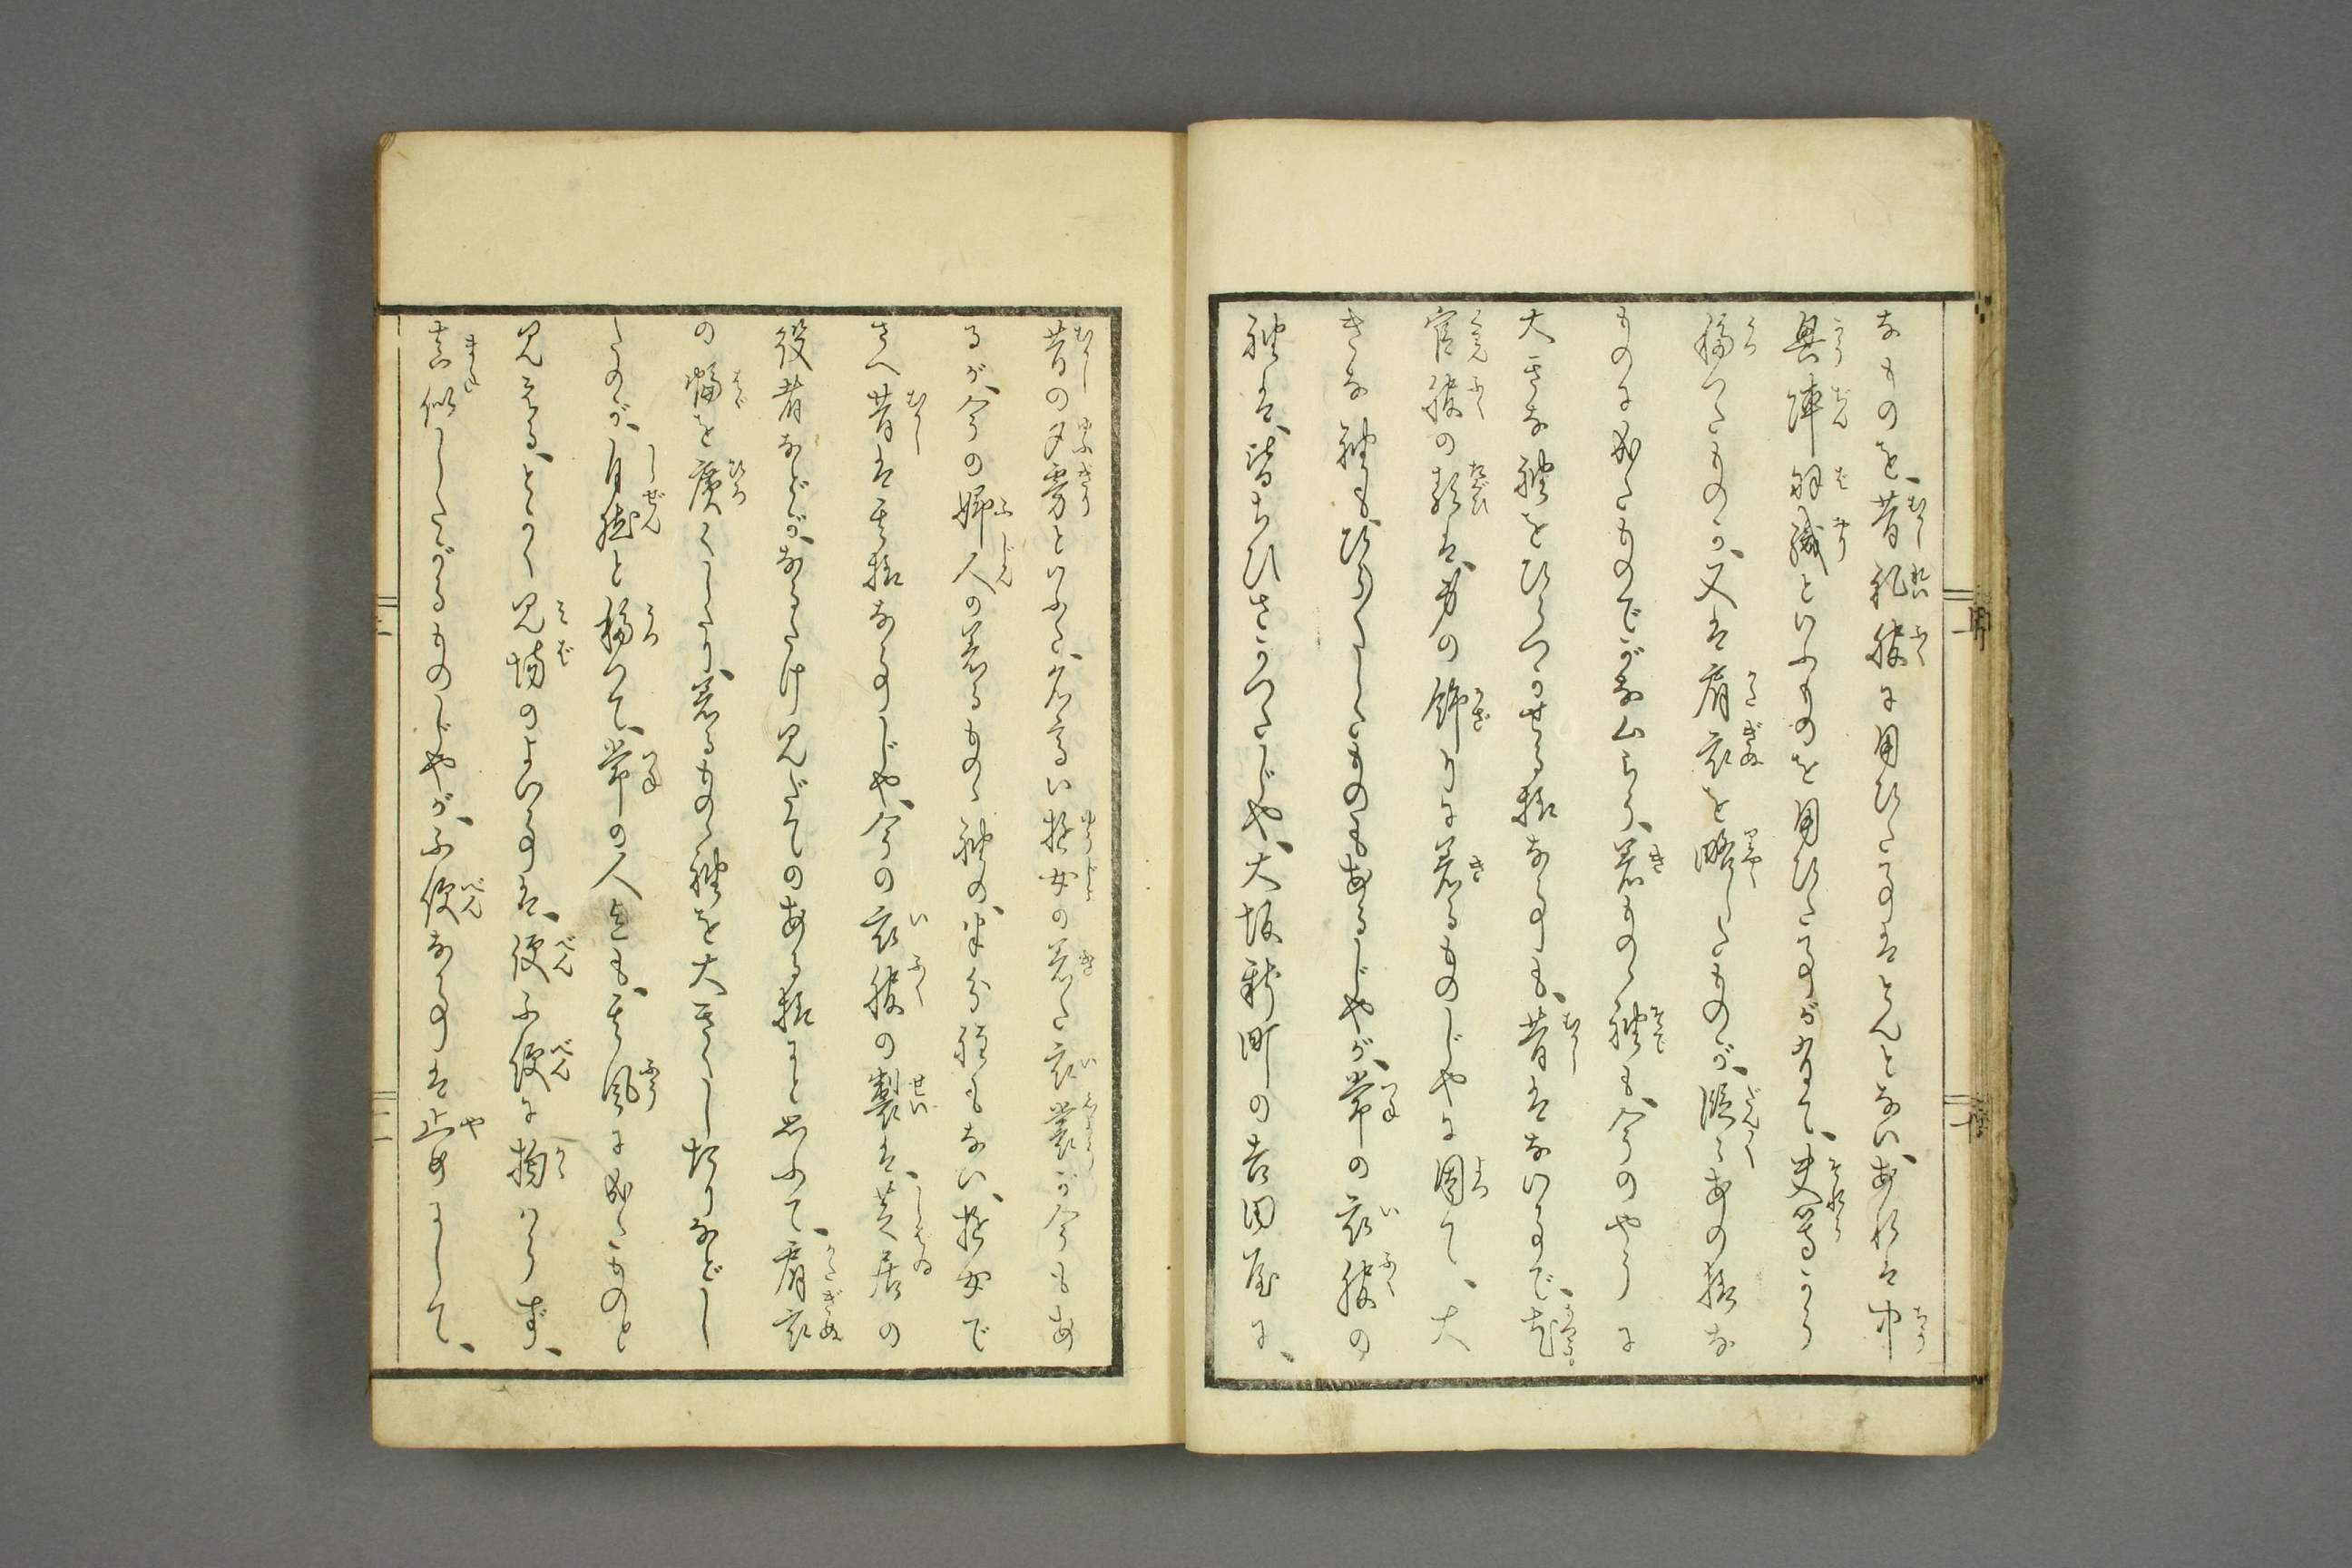 なものを、昔礼服に用ひた事はとんとない、あれは中
興陣羽織といふものを用ひた事が有て、夫等から
移つたものか、又は肩衣を略したものが、段々あの様な
ものに成たものでがな厶らう、着もの丶袖も、今のやうに
大きな袖をひらつかせる様な事も、昔はない事で、尤
官服の類は、身の飾りに着るものじやに因て、大
きな袖も、ひらひらしたものもあるじやが、常の衣服の
袖は、皆ちひさかつたじや、大坂新町の吉田屋に、
昔の夕霧といふた、名高い遊女の着た衣裳が今もあ
るが、今の婦人の着るもの丶袖の、半分程もない、遊女で
さへ昔は其様な事じや、今の衣服の製は、芝居の
役者などが、なるたけ見だてのある様にと思ふて、肩衣
の幅を広くしたり、着るもの丶袖を大きくし始りなどし
たのが、自然と移つて、常の人迄も、其風に成たものと
見える、とかく見場のよい事は、便不便に拘からず、
真似したがるものじやが、不便な事は止めにして、